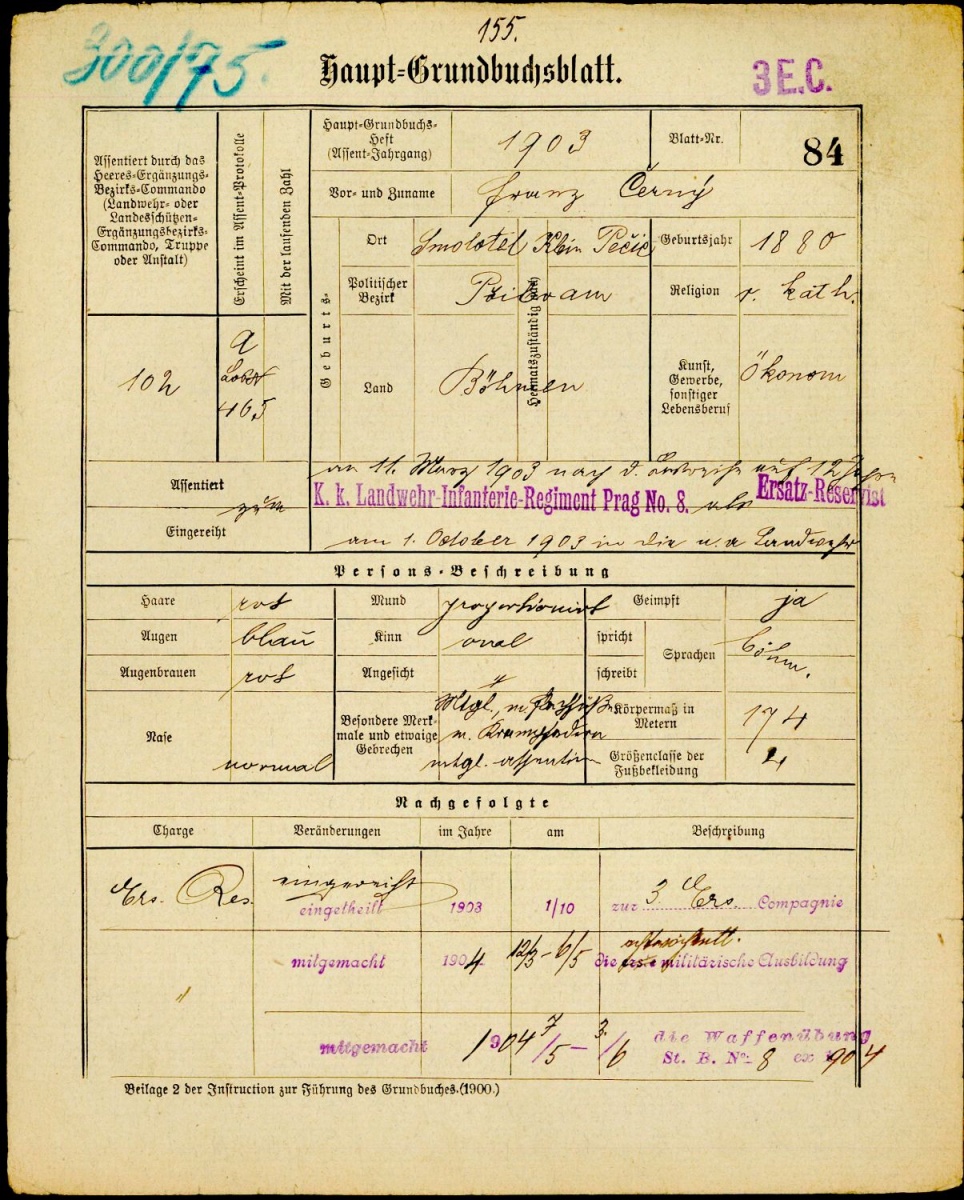 155.
300/75.
Haupt-Grundbuchsblatt.
3 E.C.
Assentiert durch das
Heeres-Ergänzungs-
Bezirks-Commando
(Landwehr- oder
Landesschützen-
Ergänzungsbezirks-
Commando, Truppe
oder Anstalt)
Erscheint im Assent-Protokolle
Mit der laufenden Zahl
Haupt-Grundbuchs-
Heft
(Assent-Jahrgang)
1903
Blatt-Nr.
84
Vor- und Zuname
Franz Černý
Geburts-
Ort
Smolotel
Heimatszuständig nach
Klein Pečic
Geburtsjahr
1880
Politischer
Bezirk
Přibram
Religion
r. kath.
102
a
465
Land
Böhmen
Kunst,
Gewerbe,
sonstiger
Lebensberuf
Ökonom
Assentiert
am 11. März 1903 nach d. Losreihe auf 12 Jahre
zum
K. k. Landwehr-Infanterie-Regiment Prag No. 8. als Ersatz-Reservist
Eingereiht
am 1. October 1903 in die Landwehr
Persons-Beschreibung
Haare
rot
Mund
proportionirt
Geimpft
ja
Augen
blau
Kinn
oval
spricht
schreibt
Sprachen
böhm.
Augenbrauen
rot
Angesicht
"
Nase
normal
Besondere Merk-
male und etwaige
Gebrechen
Mtgl., m.
m. Krampfadern
mtgl.
Körpermaß in
Metern
174
Größenclasse der
Fußbekleidung
4
Nachgefolgte
Charge
Veränderungen
im Jahre
am
Beschreibung
Ers. Res.
eingereiht
eingetheilt
1903
1/10
zur 3. Ers. Compagnie
mitgemacht
1904
12/3 – 6/5
die militärische Ausbildung
"
mitgemacht
1904
7/5 – 3./6
die Waffenübung
St. B. No 8 ex 1904
Beilage 2 der Instruction zur Führung des Grundbuches.(1900.)